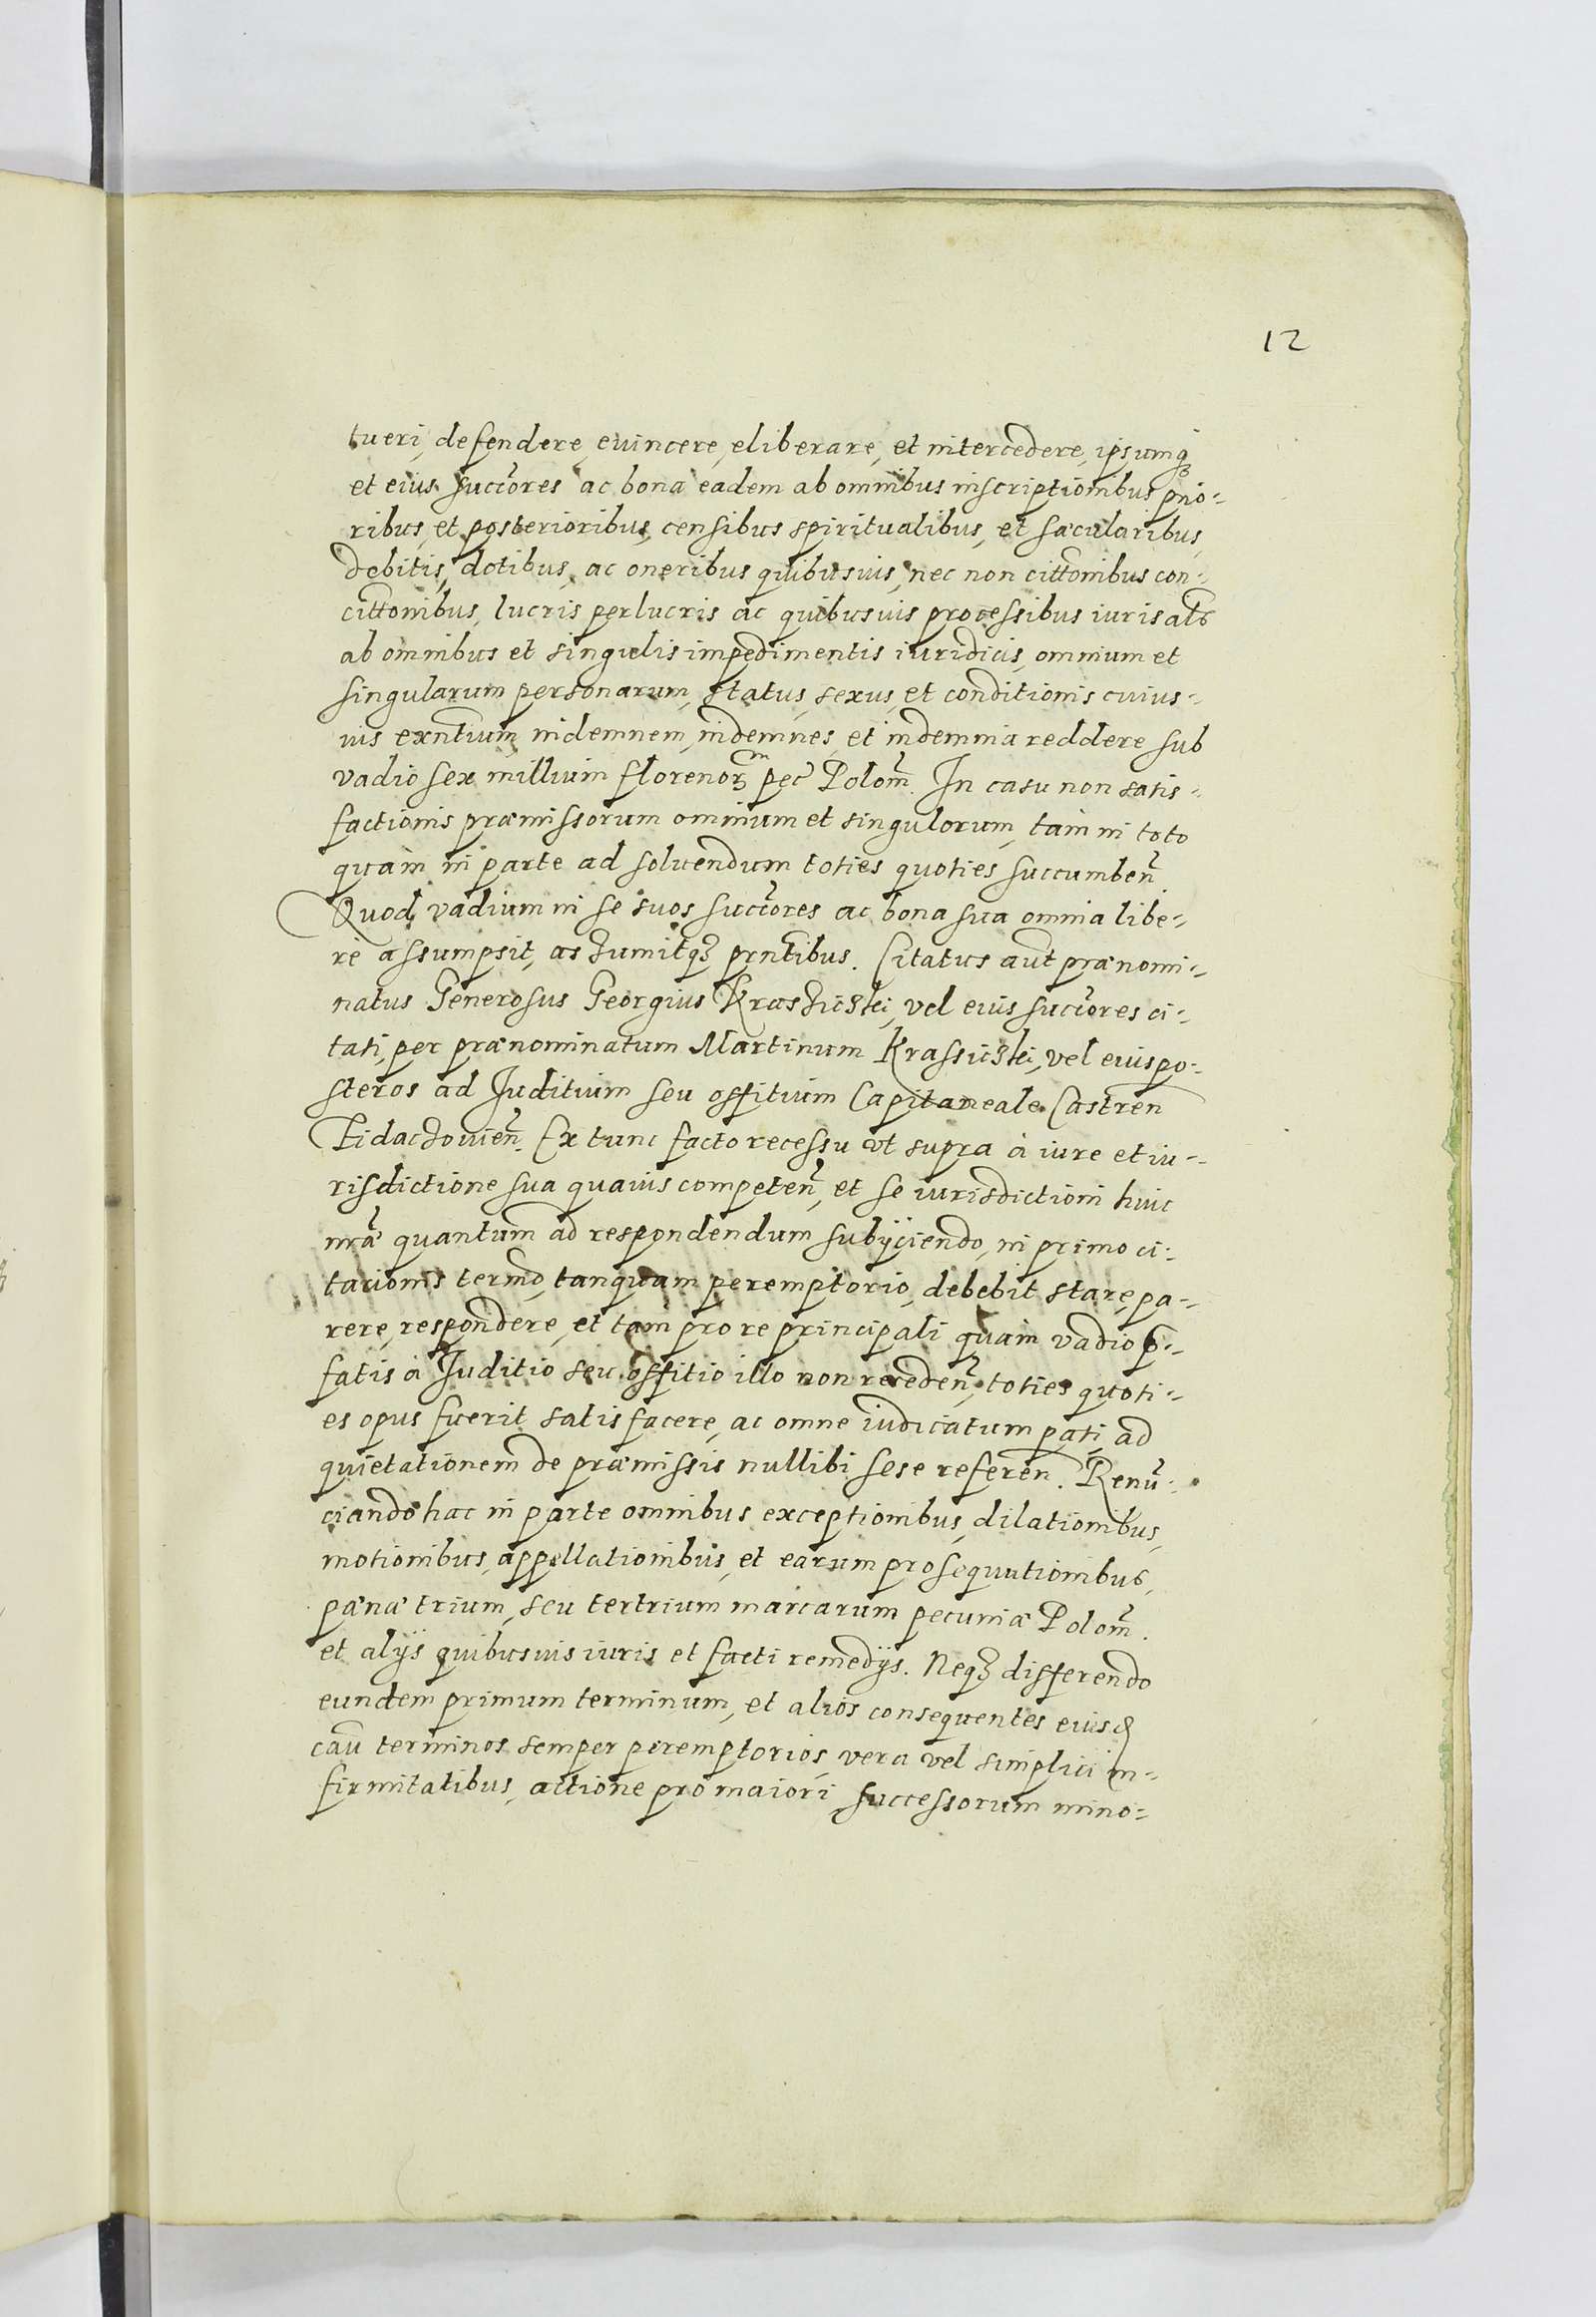 12
tueri, defendere, euincere, eliberare, et intercedere, ipsumq₃
et eius succ̃ores ac bona eadem ab omnibus inscriptionibus prio-
ribus, et posterioribus, censibus spiritualibus, et sæcularibus,
debitis, dotibus, ac oneribus quibusuis, nec non cittõnibus con-
cittõnibus, lucris perlucris ac quibusuis processibus iuris als̃
ab omnibus et singulis impedimentis iuridicis, omnium et
singularum personarum, status, sexus, et conditionis cuius-
uis exñtium, indemnem, indemnes, et indemnia reddere sub
vadio sex millium florenor̃ pec̃ Polom̃. In casu non satis-
factionis præmissorum omnium et singulorum, tam in toto
quam in parte ad soluendum toties quoties succumben̄
Quod vadium in se suos succ̃ores ac bona sua omnia libe-
re assumpsit, assumitq₃ prñtibus. Citatus aut̃ prænomi-
natus Generosus Georgius Krassicski, vel eius succ̃ores ci-
tati, per prænominatum Martinum Krassicski, vel eius po-
steros ad Juditium seu offitium Capitaneale Castren̄
Ex tunc facto recessu vt supra à iure et iu-
risdictione sua quauis competen̄, et se iurisdictioni huic
nr̃a quantum ad respondendum subijciendo, in primo ci-
tationis term̃o, tanquam peremptorio, debebit stare, pa-
rere, respondere, et tam pro re principali quam vadio p̱-
fatis à Juditio seu offitio illo non receden̄, toties quoti-
es opus fuerit satisfacere, ac omne iudicatum pati, ad
quietationem de præmissis nullibi sese referen̄. Renu̅-
ciando hac in parte omnibus exceptionibus, dilationibus,
motionibus, appellationibus, et earum prosequutionibus,
pænæ trium, seu ter trium marcarum pecuniæ Polom̃.
et alijs quibusuis iuris et facti remedijs. Neq₃ differendo
eundem primum terminum, et alios consequentes eiusd̃
cau̅ terminos semper peremptorios, vera vel simplici in-
firmitatibus, actione pro maiori successorum mino-